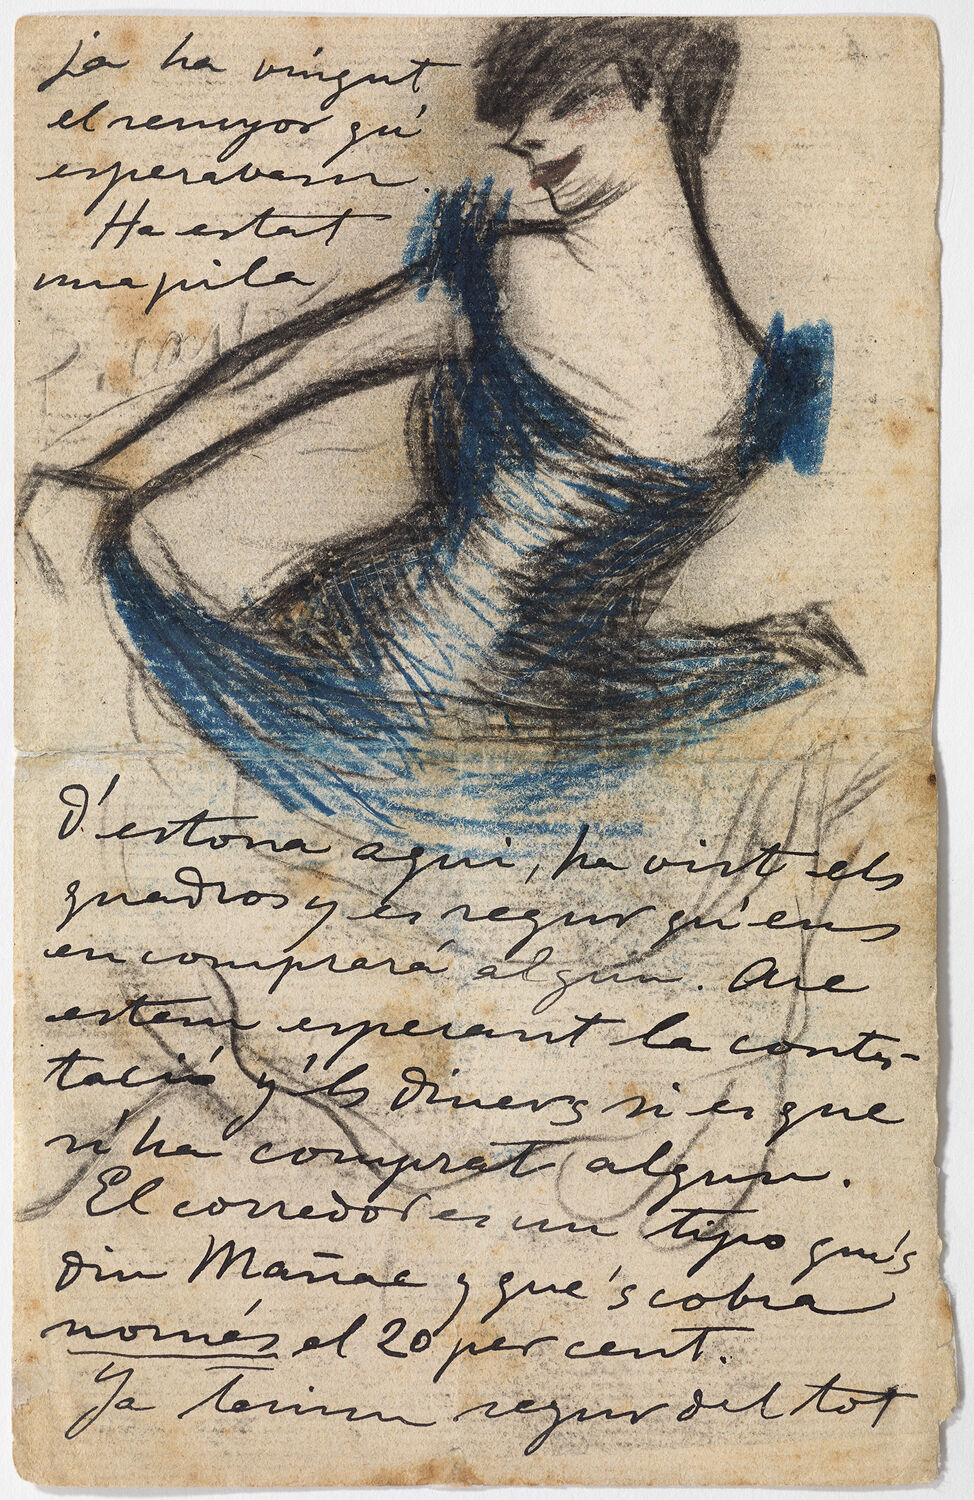 ja ha vingut
el senyor qu'
esperavam.
Ha estat
una pila
d'estona aqui, ha vist els
quadros y es segur qu'ens
en comprará algun. Are
estem esperant la contes-
tació y'ls diners si es que
n'ha comprat algun.
El corredor es un tipo qu's
diu Mañac y que's cobra
només el 20 per cent.
Ja tenim segur del tot